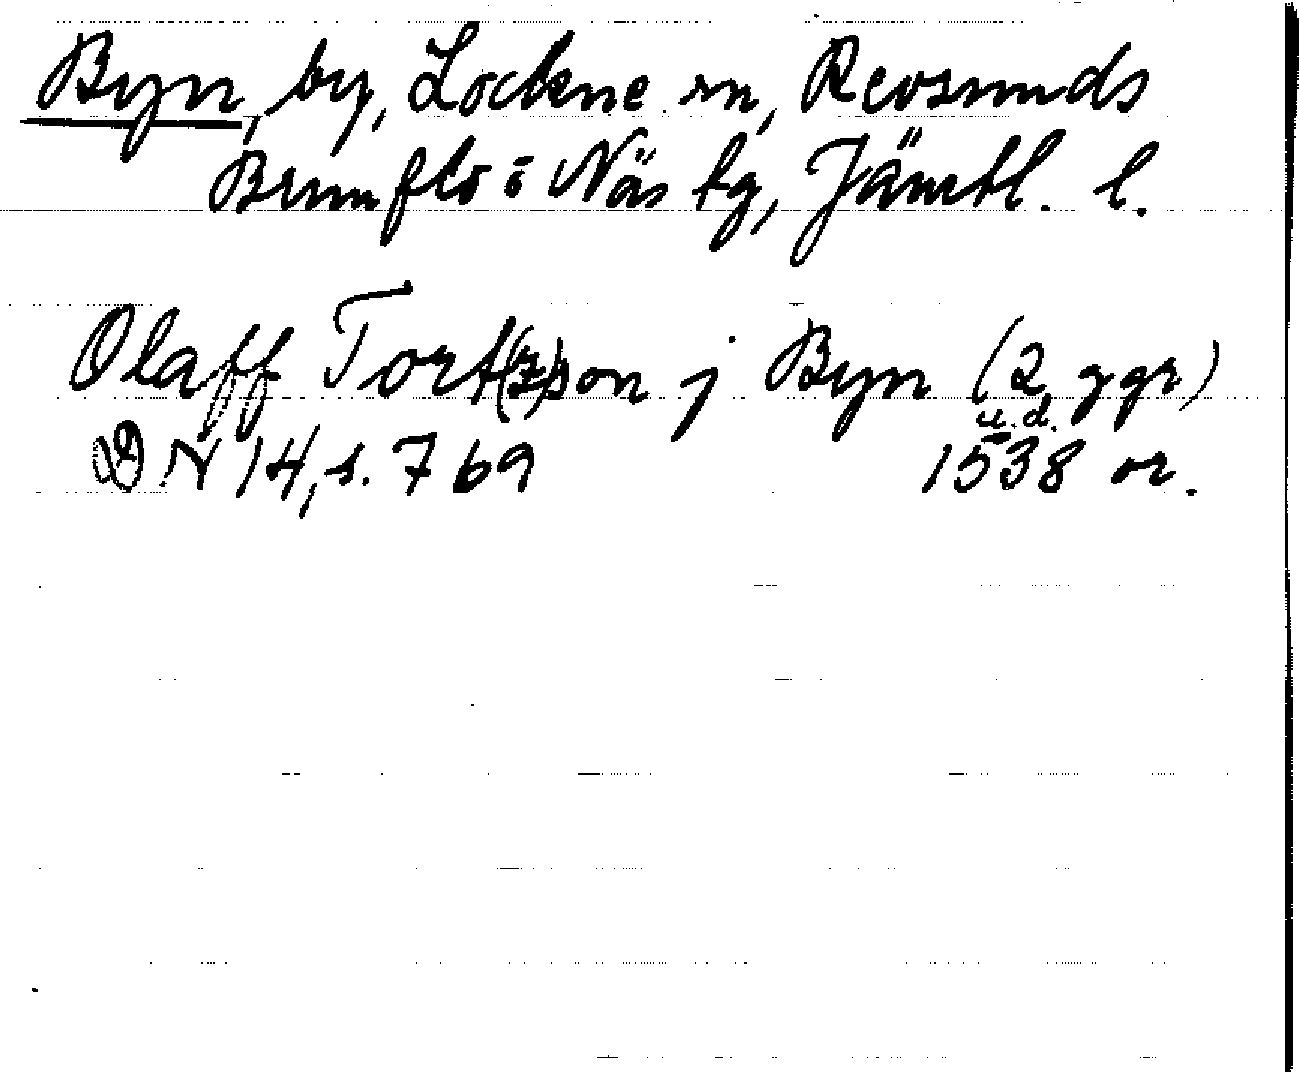 Byn, by, Lockne sn, Revsunds
Brunflo o Näs tg, Jämtl. l.
Olaff Tort(z)son j Byn (2 ggr)
u.d.
DN 14, s. 769 1538 or.